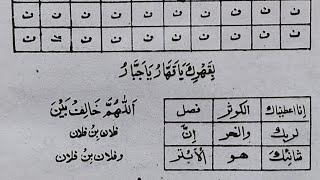 ن ن ن ن ن ن ن ن ن
ن ن ن ن ن ن ن ن ن
بِقَهْرِكَ يَا قَهَّارُ يَا جَبَّارُ
انا اعطيناك الكوثر فصل
لربك والنحر إِنَّ
شَانِئَكَ هُوَ الْأَبْتَر
اَللّٰهُمَّ خَالِفْ بَيْنَ
فلان بن فلان
وفلان بن فلان